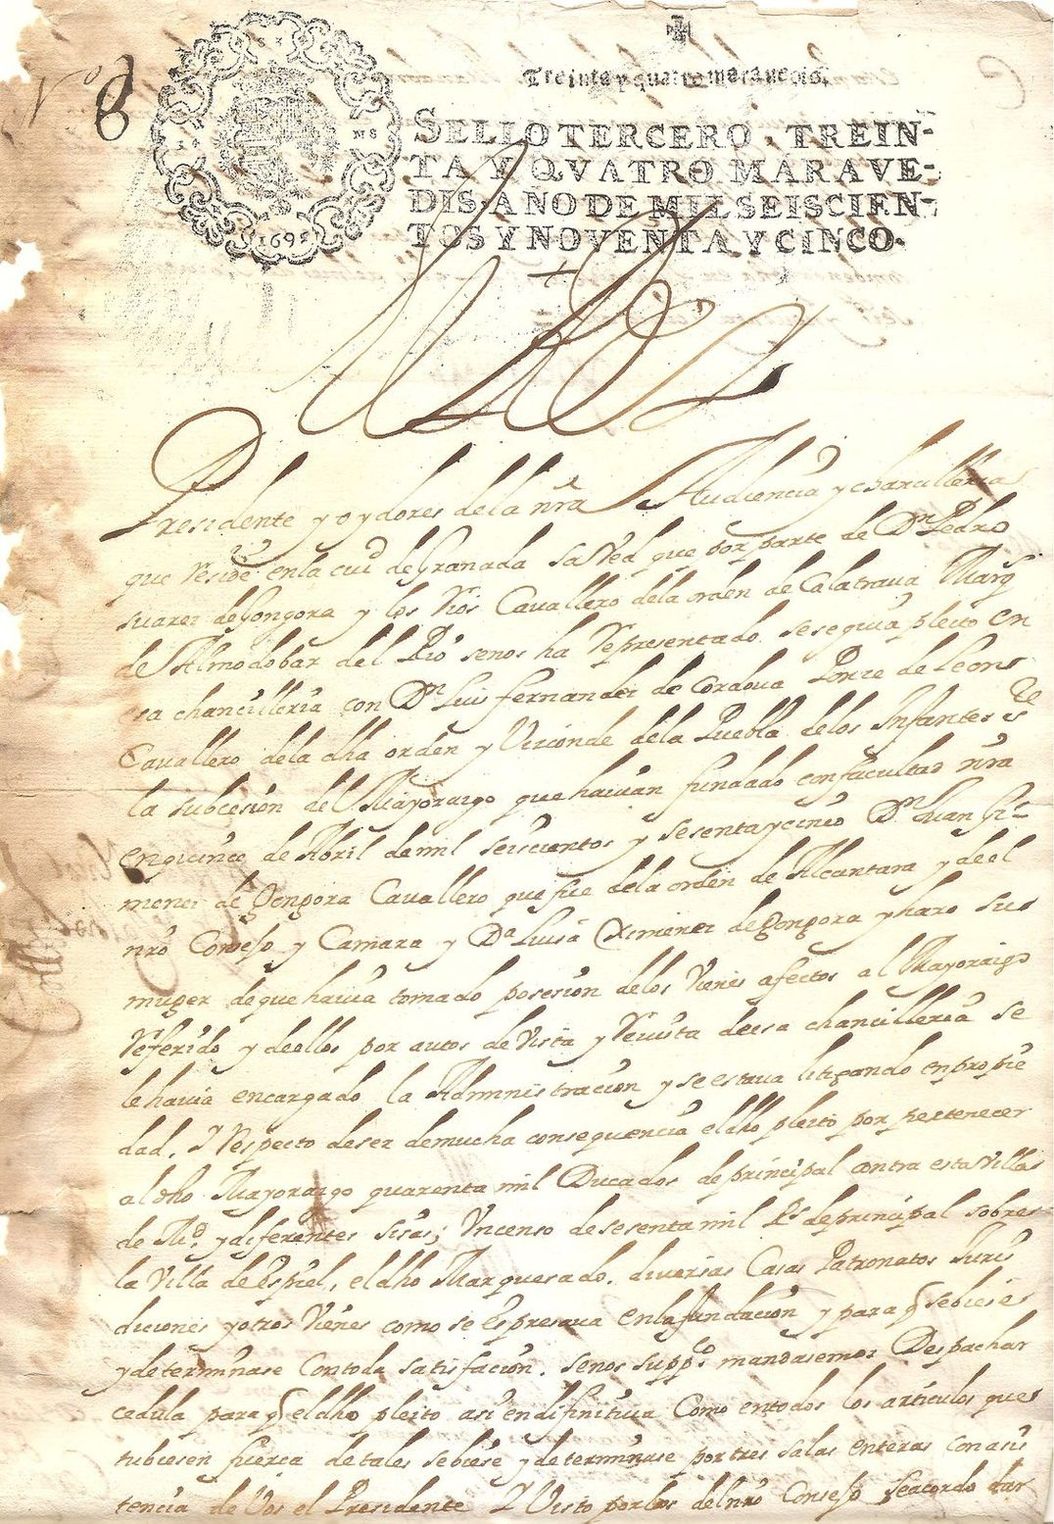 Treinta y quatro maravedis.
SELLO TERCERO. TREIN-
TA Y QVATRO MARAVE-
DIS. AÑO DE MIL SEISCIEN-
TOS Y NOVENTA Y CINCO.
1695
Presidente y oydores de la nra Audiencia y chancilleria
que reside en la ciud de Granada saved que por parte de Dn Pedro
suarez de Gongora y los Rios Cavallero de la orden de Calatrava Marqs
de Almodobar del Rio senos ha representado se seguia pleito en
esa chancilleria con Dn Luis fernandez de Cordova Ponze de Leon
Cavallero de la dha orden y Vizconde de la Puebla de los Infantes sre
la subcesion del Mayorazgo que havian fundado con facultad nra
en quince de Abril de mil seiscientos y sesenta y cinco Dn Juan Gi-
menez de Gongora Cavallero que fue de la orden de Alcantara y de el
nro Consejo y Camara y Da Luisa Ximenez de Gongora y haro su
muger de que havia tomado posesion de los Vienes afectos al Mayorazgo
referido y de ellos por autos de Vista y Revista de esa chancilleria se
le havia encargado la Administracion y se estava litigando en propie
dad. Y respecto de ser de mucha consequencia el dho pleito por pertenecer
al dho Mayorazgo quarenta mil Ducados de principal contra esta Villa
de Md y diferentes sisas; Un censo de sesenta mil Rs de principal sobre
la Villa de Espiel, el dho Marquesado. diversas Casas Patronatos Juris
diciones y otros Vienes como se espresava en la fundacion y para q se biese
y determinase con toda satisfacion. se nos suppco mandasemos Despachar
cedula para q el dho pleito asi en difinitiva Como en todos los articulos que
tubiesen fuerza de tales se biese y determinase por tres salas enteras con asis
tencia de Vos el Presidente Y Visto por los del nro Consejo se acordo dar